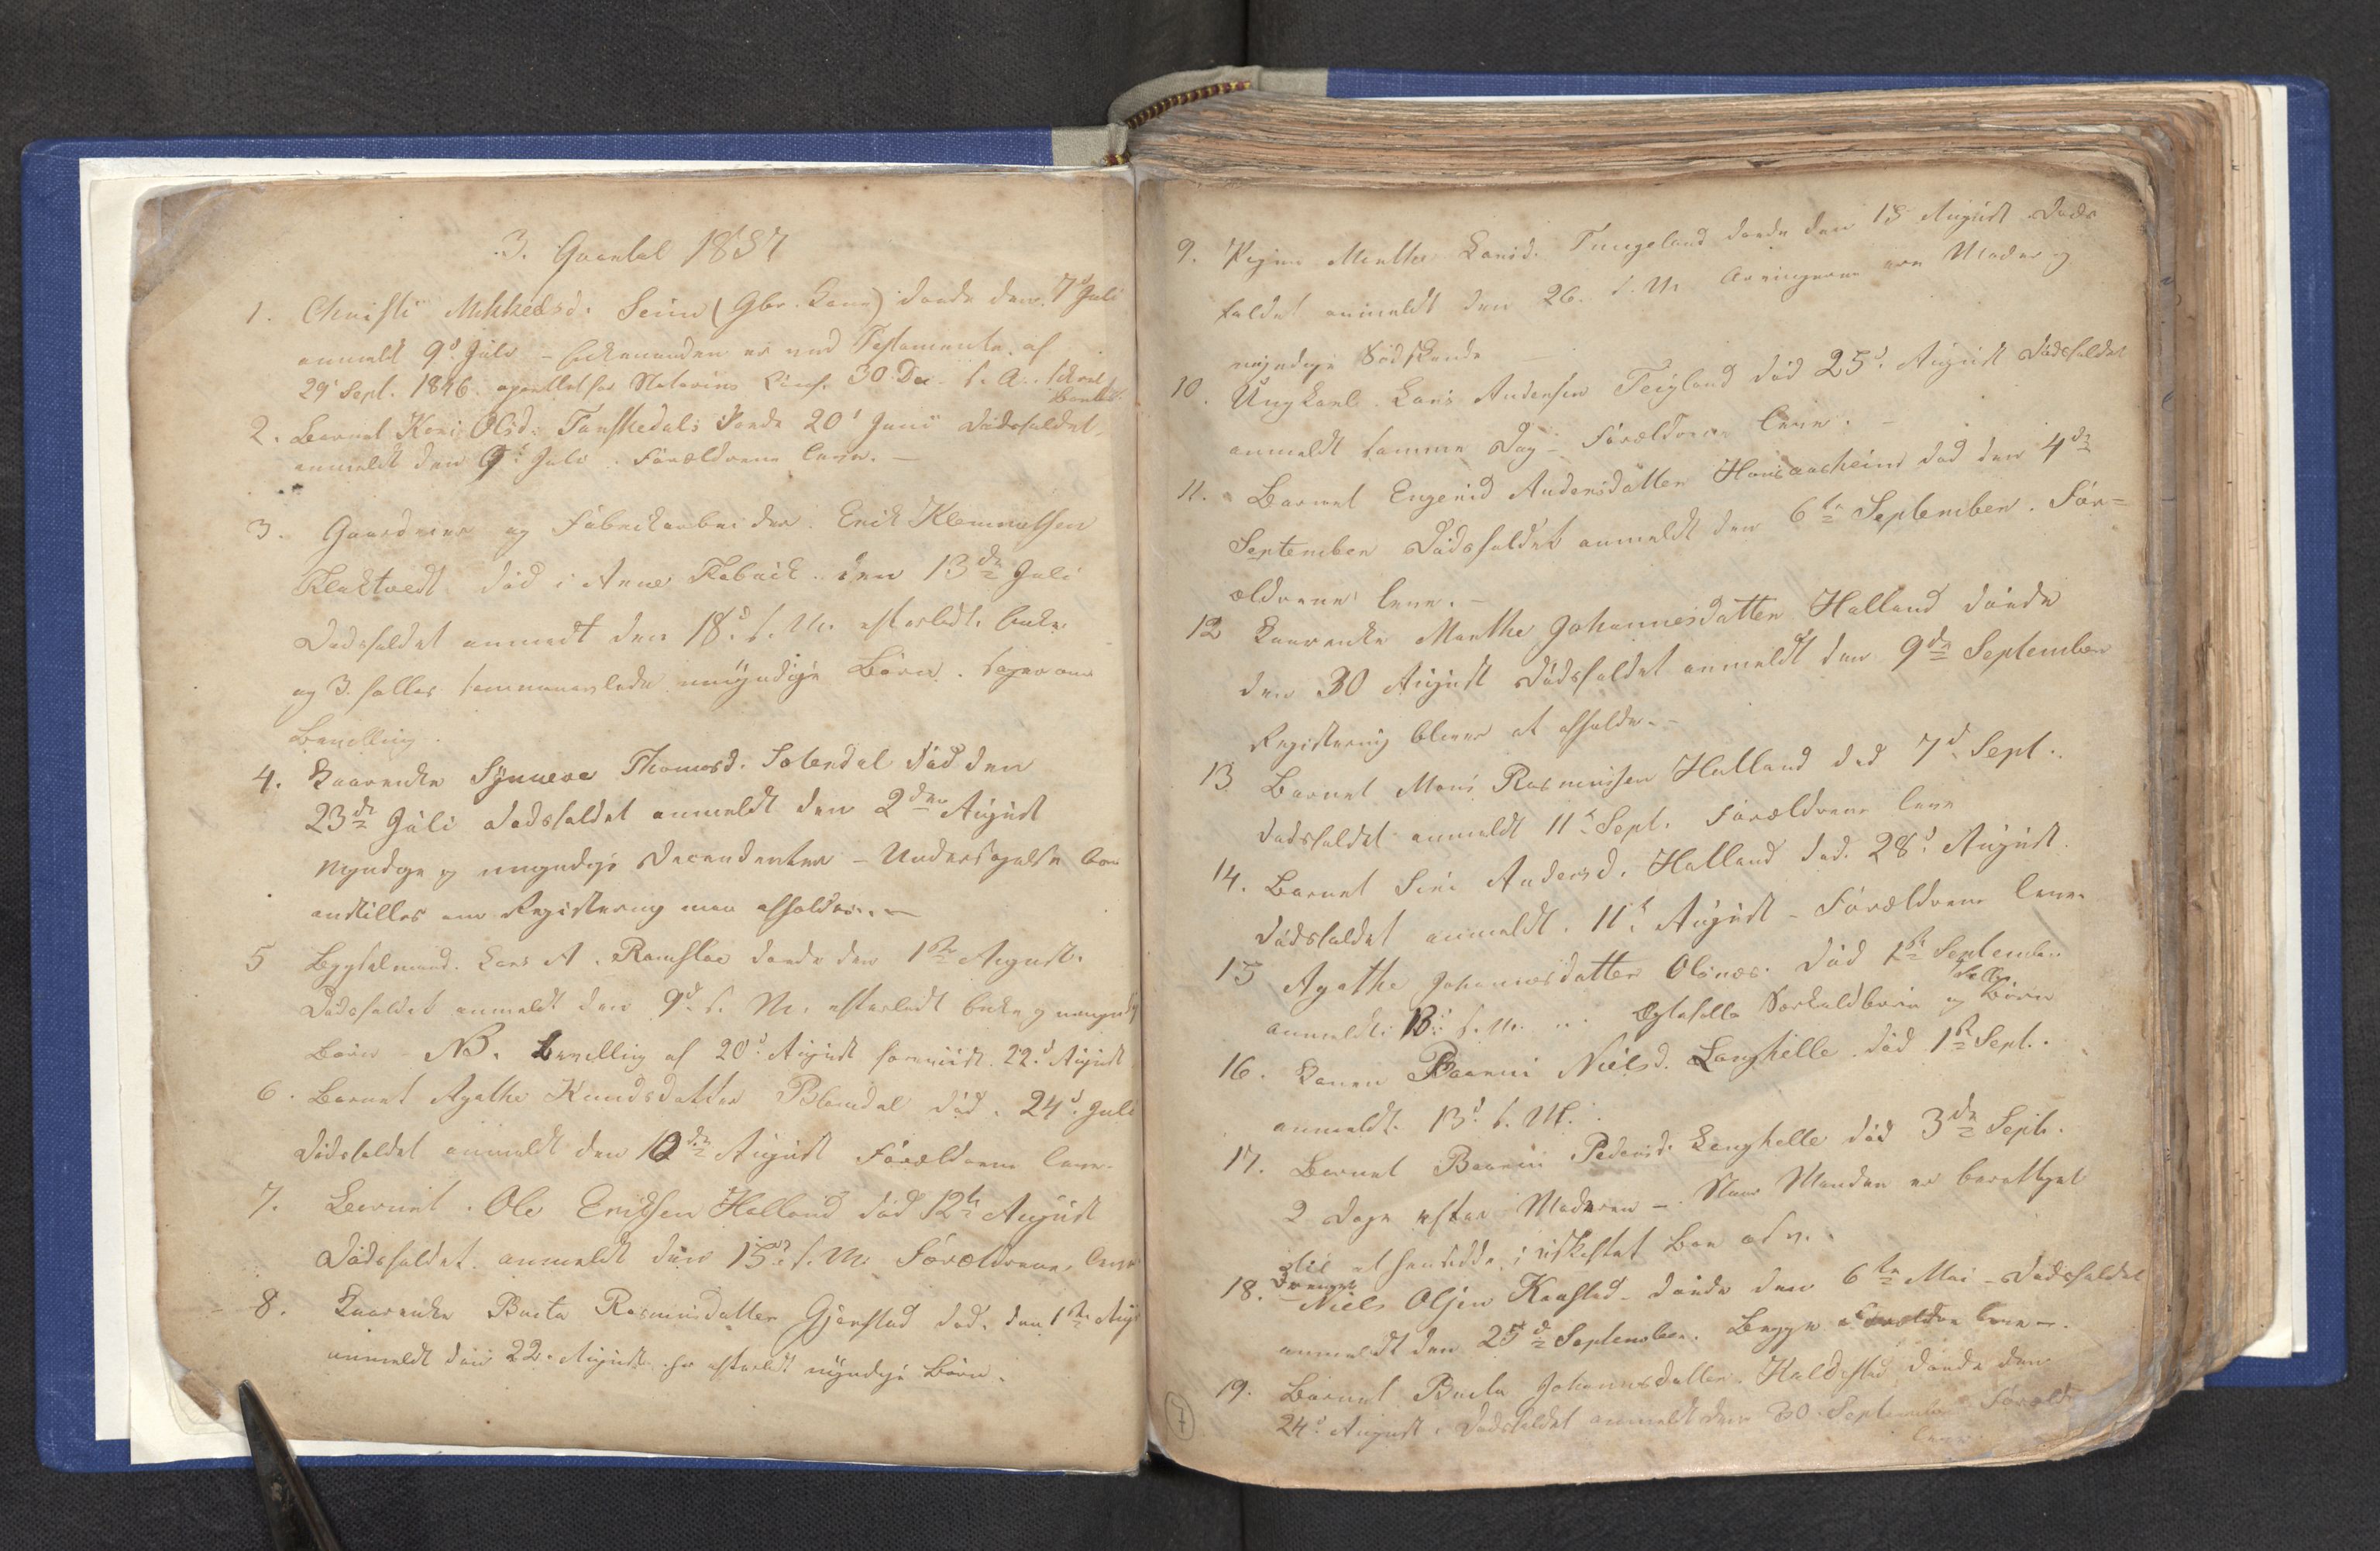 3. Qvartal 1857
1. Christi Mikkelsd. Seim (Gbr. Kone) døde den 7d Juli
anmeldt 9d Juli – Enkemanden er ved Testamente af
29d Sept. 1846 oprettet for Notarius 30 Dec. s. A.
2. Barnet Kari Olsd. Tanskedal døde 20d Juni Dødsfaldet
anmeldt den 9d Juli. Forældrene leve. –
3. Gaardeier og Fabrikarbeider Erik Klemmetsen
Klaktvedt død i Arne Fabrik den 13de Juli
Dødsfaldet anmedt den 18d s. M. efterladt Enke
og 3 fælles sammenavlede umyndige Børn. søger om
Bevilling.
4. Kaarenke Synneve Thomasd. Solendal død den
23de Juli Dødsfaldet anmeldt den 2den August
Myndige og umyndige Decendenter – Undersøgelse bør
anstilles om Registrering maa afholdes. –
5 Bygselmand Lars A. Ramslae døde den 1ste August.
Dødsfaldet anmeldt den 9d s. M. efterladt Enke og umyndige
Børn – NB. Bevilling af 20d August foreviist 22d August
6. Barnet Agathe Knudsdatter Blendal død 24d Juli
Dødsfaldet anmeldt den 10de August Forældrene leve.
7. Barnet Ole Eriksen Halland død 12te August
Dødsfaldet anmeldt den 15de s. M. Forældrene leve
8. Kaarenke Brita Rasmusdatter Gjerstad død den 1ste Aug
anmeldt den 22 August har efterladt myndige Børn.
9. Pigen Marthe Larsd. Tungeland døde den 18 August Døds
faldet anmeldt den 26. s. M. Arvingerne ere Moder og
myndige Sødskende
10. Ungkarl Lars Andersen Teigland død 25d August Dødsfaldet
anmeldt samme Dag – Forældrene leve. –
11. Barnet Engerid Andersdatter død den 4de
September Dødsfaldet anmeldt den 6te September. For=
ældrene leve. –
12 Kaarenke Marthe Johannesdatter Halland døde
den 30 August Dødsfaldet anmeldt den 9de September
Registrering bliver at afholde. –
13 Barnet Mons Rasmussen Halland død 7d Sept.
Dødsfaldet anmeldt 11te Sept. Forældrene leve
14. Barnet Siri Andersd. Halland død 28d August.
Dødsfaldet anmeldt 11te August – Forældrene leve.
15 Agathe Johannesdatter Olsnes død 1ste September
anmeldt 13d s. M. Ægtefælle Særkuldbørn og fælles Børn
16. Konen Baarni Nielsd. Langhelle død 1ste Sept.
anmeldt 13d s. M.
17. Barnet Baarni Pedersd. Langhelle død 3de Sept.
2 Dage efter Moderen – Naar Manden er berettiget
til at hensidde i uskiftet Boe osv.
18. Drengen Niels Olsen Kaastad døde den 6te Mai – Dødsfaldet
anmeldt den 25de September. Begge Forældre leve –.
19. Barnet Brita Johannesdatter Haldestad døde den
24d August. Dødsfaldet anmeldt den 30 September Forældr
leve
7